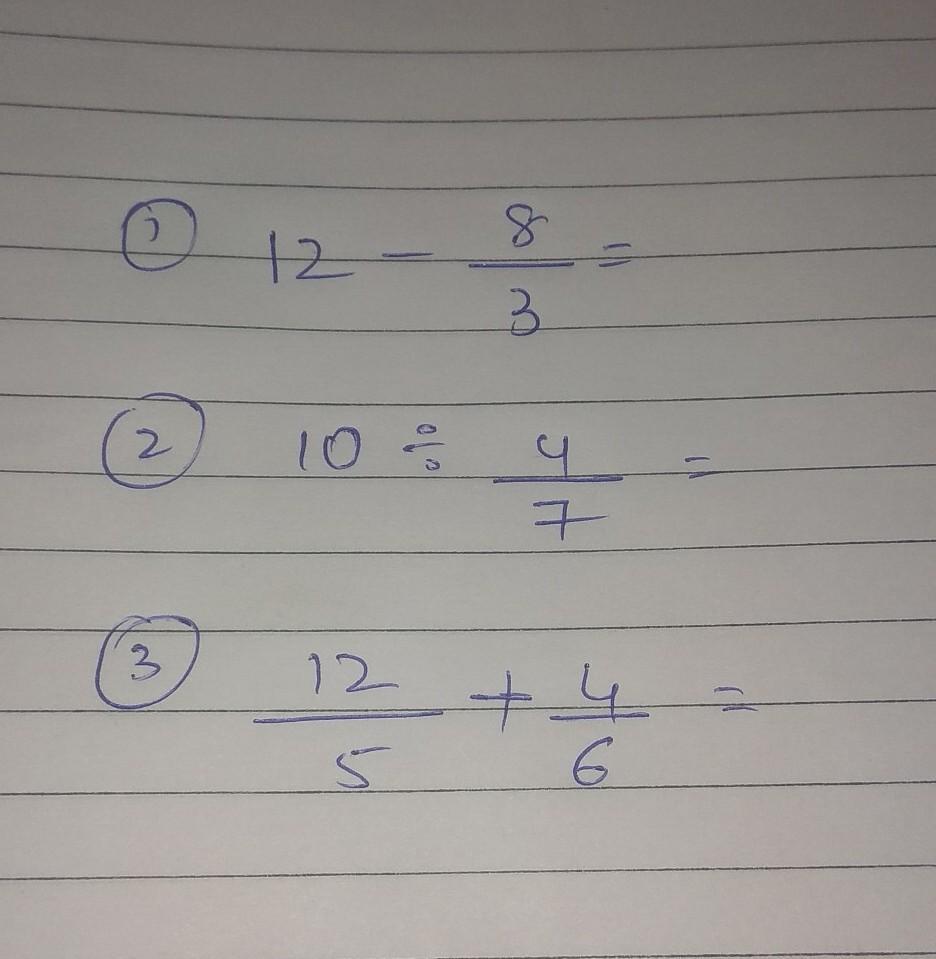 ① 12 - 8/3 =
② 10 ÷ 4/7 =
③ 12/5 + 4/6 =